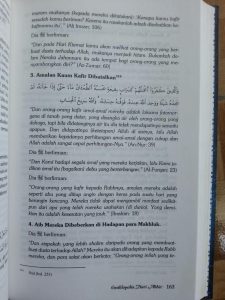 meniru makanan (kepada mereka dikatakan): 'Kenapa kamu kafir
sesudah kamu beriman? Karena itu rasakanlah azab disebabkan ke-
kafiranmu itu'." (Ali Imran: 106)
Dia ﷻ berfirman:
"Dan pada Hari Kiamat kamu akan melihat orang-orang yang ber-
buat dusta terhadap Allah, mukanya menjadi hitam. Bukankah da-
lam neraka Jahannam itu ada tempat bagi orang-orang yang me-
nyombongkan diri?" (Az-Zumar: 60)
3. Amalan Kaum Kafir Dibatalkan
Dia ﷻ berfirman:
وَالَّذِينَ كَفَرُوا أَعْمَالُهُمْ كَسَرَابٍ بِقِيعَةٍ يَحْسَبُهُ الظَّمْآنُ مَاءً حَتَّى إِذَا جَاءَهُ لَمْ
يَجِدْهُ شَيْئًا وَوَجَدَ اللَّهَ عِنْدَهُ فَوَفَّاهُ حِسَابَهُ وَاللَّهُ سَرِيعُ الْحِسَابِ
"Dan orang-orang kafir amal-amal mereka adalah laksana fatamor-
gana di tanah yang datar, yang disangka air oleh orang-orang yang
dahaga, tetapi bila didatanginya air itu dia tidak mendapatinya sesuatu
apapun. Dan didapatinya (ketetapan) Allah di sisinya, lalu Allah
memberikan kepadanya perhitungan amal-amal dengan cukup dan
Allah adalah sangat cepat perhitungan-Nya." (An-Nur: 39)
Dia ﷻ berfirman:
"Dan Kami hadapi segala amal yang mereka kerjakan, lalu Kami ja-
dikan amal itu (bagaikan) debu yang beterbangan." (Al-Furqan: 23)
Dia ﷻ berfirman:
"Orang-orang yang kafir kepada Rabbnya, amalan mereka adalah
seperti abu yang ditiup angin dengan keras pada suatu hari yang
berangin kencang. Mereka tidak dapat mengambil manfaat sedikit
pun dari apa yang telah mereka usahakan (di dunia). Yang demi-
kian itu adalah kesesatan yang jauh." (Ibrahim: 18)
4. Aib Mereka Dibeberkan di Hadapan para Makhluk.
Dia ﷻ berfirman:
"Dan siapakah yang lebih zhalim daripada orang yang membuat-
buat dusta terhadap Allah? Mereka itu akan dihadapkan kepada Rabb
mereka, dan para saksi akan berkata: 'Orang-orang inilah yang te-
Ensiklopedia Hari Akhir 163